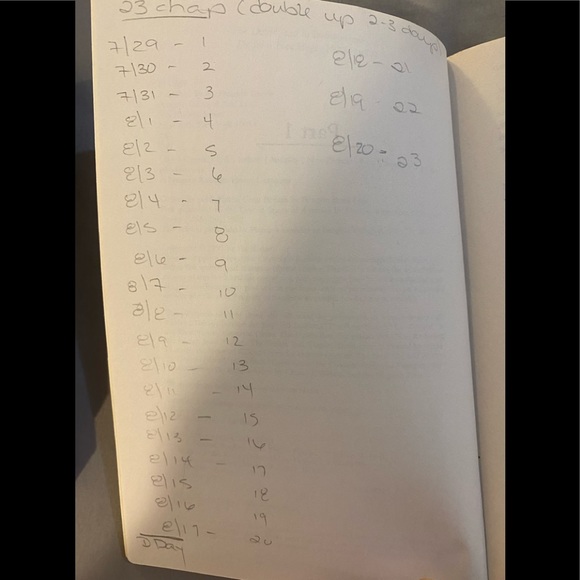 23 chap (double up 2-3 days)
7/29 - 1
7/30 - 2
7/31 - 3
8/1 - 4
8/2 - 5
8/3 - 6
8/4 - 7
8/5 - 8
8/6 - 9
8/7 - 10
8/8 - 11
8/9 - 12
8/10 - 13
8/11 - 14
8/12 - 15
8/13 - 16
8/14 - 17
8/15 18
8/16 19
8/17 - 20
D Day
8/18 - 21
8/19 - 22
8/20 - 23
Part 1